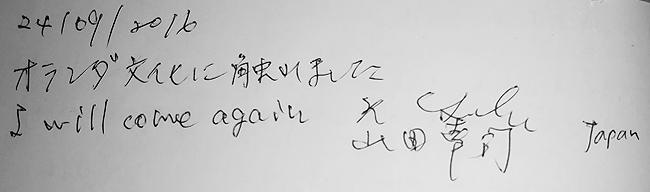 24/09/2016
オランダ文化に触れました
I will come again
山田
Japan